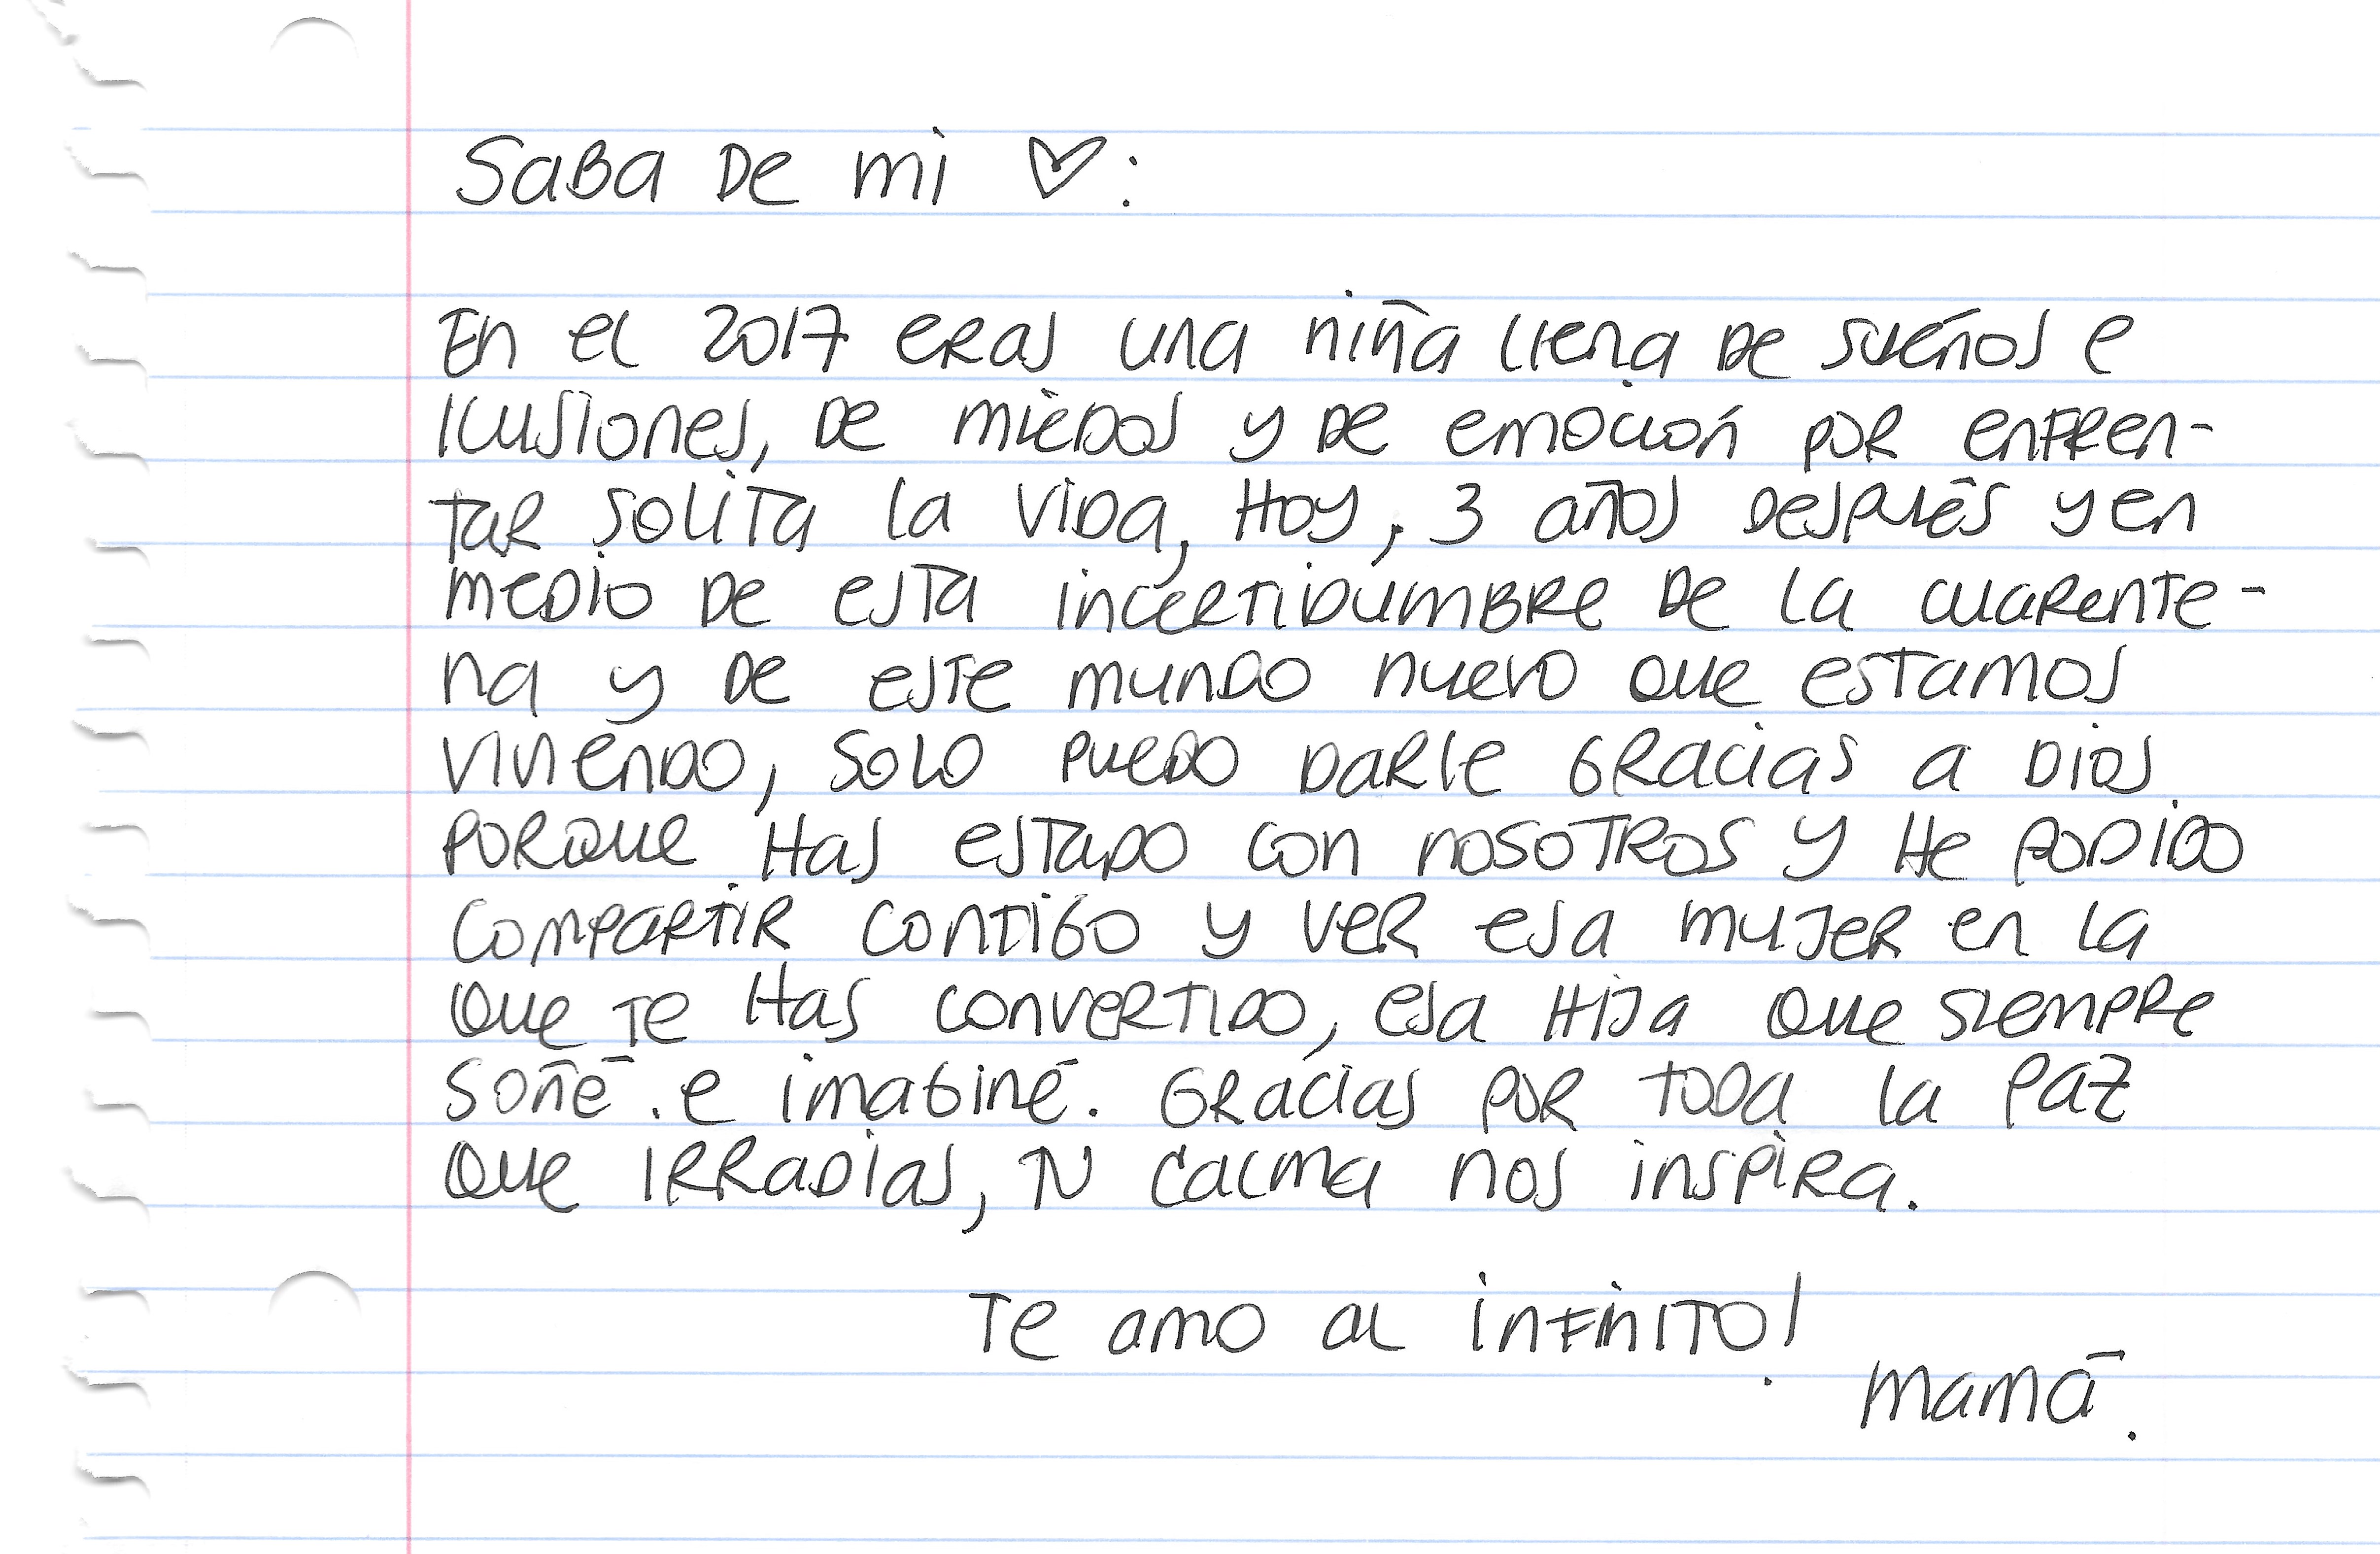 Saba de mi ♡:
En el 2017 eras una niña llena de sueños e
ilusiones, de miedos y de emoción por enfren-
tar solita la vida, Hoy, 3 años después y en
medio de esta incertidumbre de la cuarente-
na y de este mundo nuevo que estamos
viviendo, solo puedo darle gracias a Dios
porque has estado con nosotros y he podido
compartir contigo y ver esa mujer en la
que te has convertido, esa hija que siempre
soñé e imaginé. Gracias por toda la paz
que irradias, tu calma nos inspira.
Te amo al infinito!
Mamá.